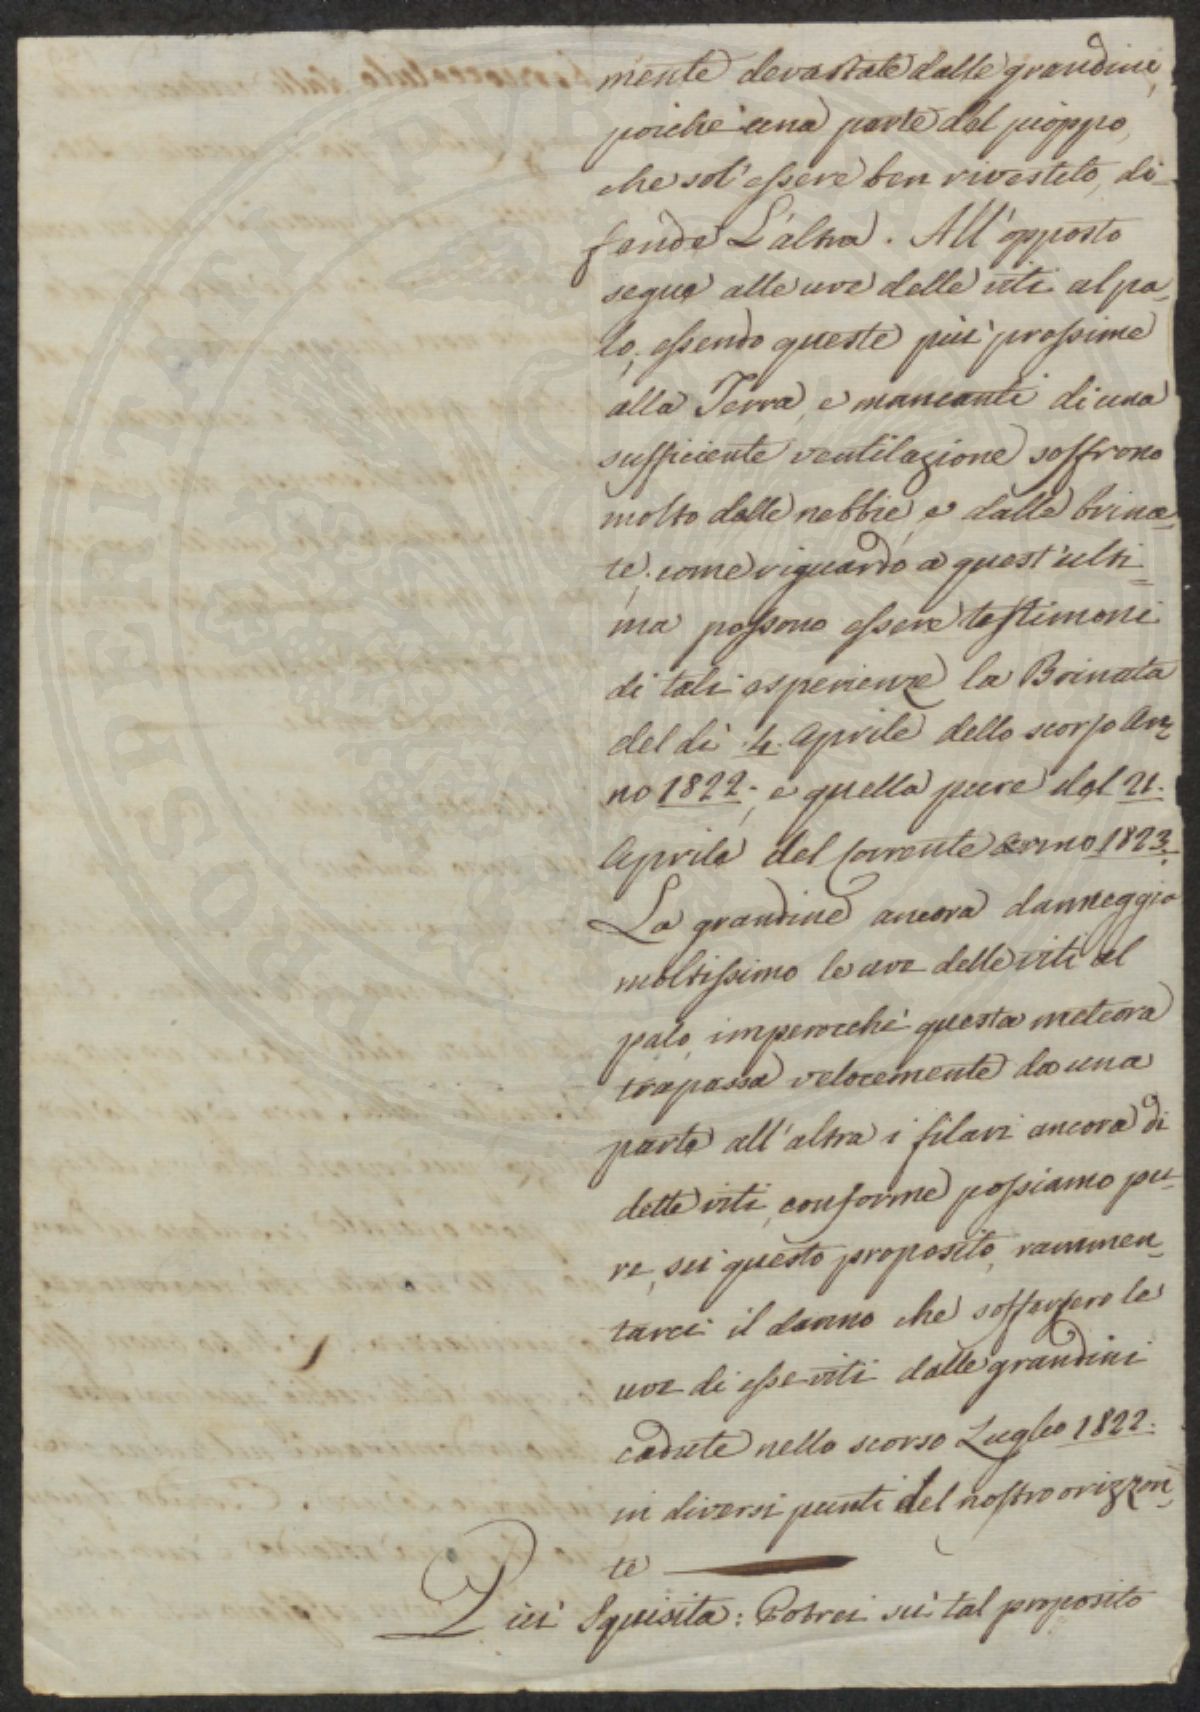 mente devastate dalle grandini,
poiche una parte del pioppo,
che sol' essere ben rivestito, di-
fende L'altra. All'opposto
segue alle uve delle viti al pa-
lo, essendo queste più prossime
alla Terra, e mancanti di una
sufficiente ventilazione soffrono
molto dalle nebbie, e dalle brina-
te, come riguardo a quest'ulti-
ma possono essere testimoni
di tali esperienze la Brinata
del dì 4. Aprile dello scorso An-
no 1822; e quella pure del 21.
Aprile del Corrente Anno 1823.
La grandine ancora danneggia
moltissimo le uve delle viti al
palo, imperocchè questa meteora
trapassa velocemente da una
parte all'altra i filari ancora di
dette viti, conforme possiamo pu-
re, su questo proposito, rammen-
tarci il danno che soffersero le
uve di esse viti dalle grandini
cadute nello scorso Luglio 1822.
in diversi punti del nostro orizzon-
te
Più Squisita: Potrei sù tal proposito
PROSPERITATI PUBLICAE